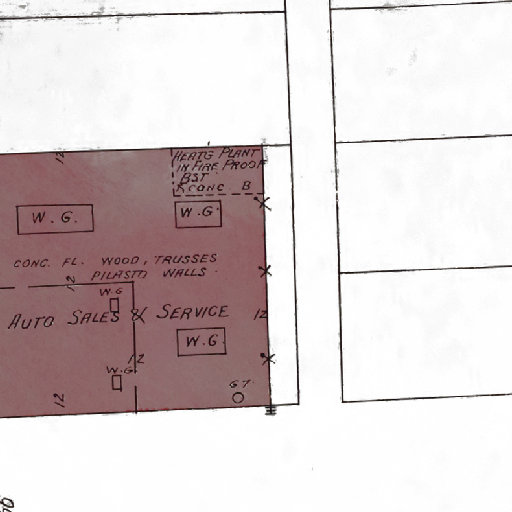 12
HEAT'G PLANT
IN FIRE PROOF
BST
R CONC B
W.G.
W.G.
CONC. FL. WOOD, TRUSSES
PILAST'D WALLS.
12
W.G
AUTO SALES & SERVICE
12
W.G.
12
W.G.
G.T.
12